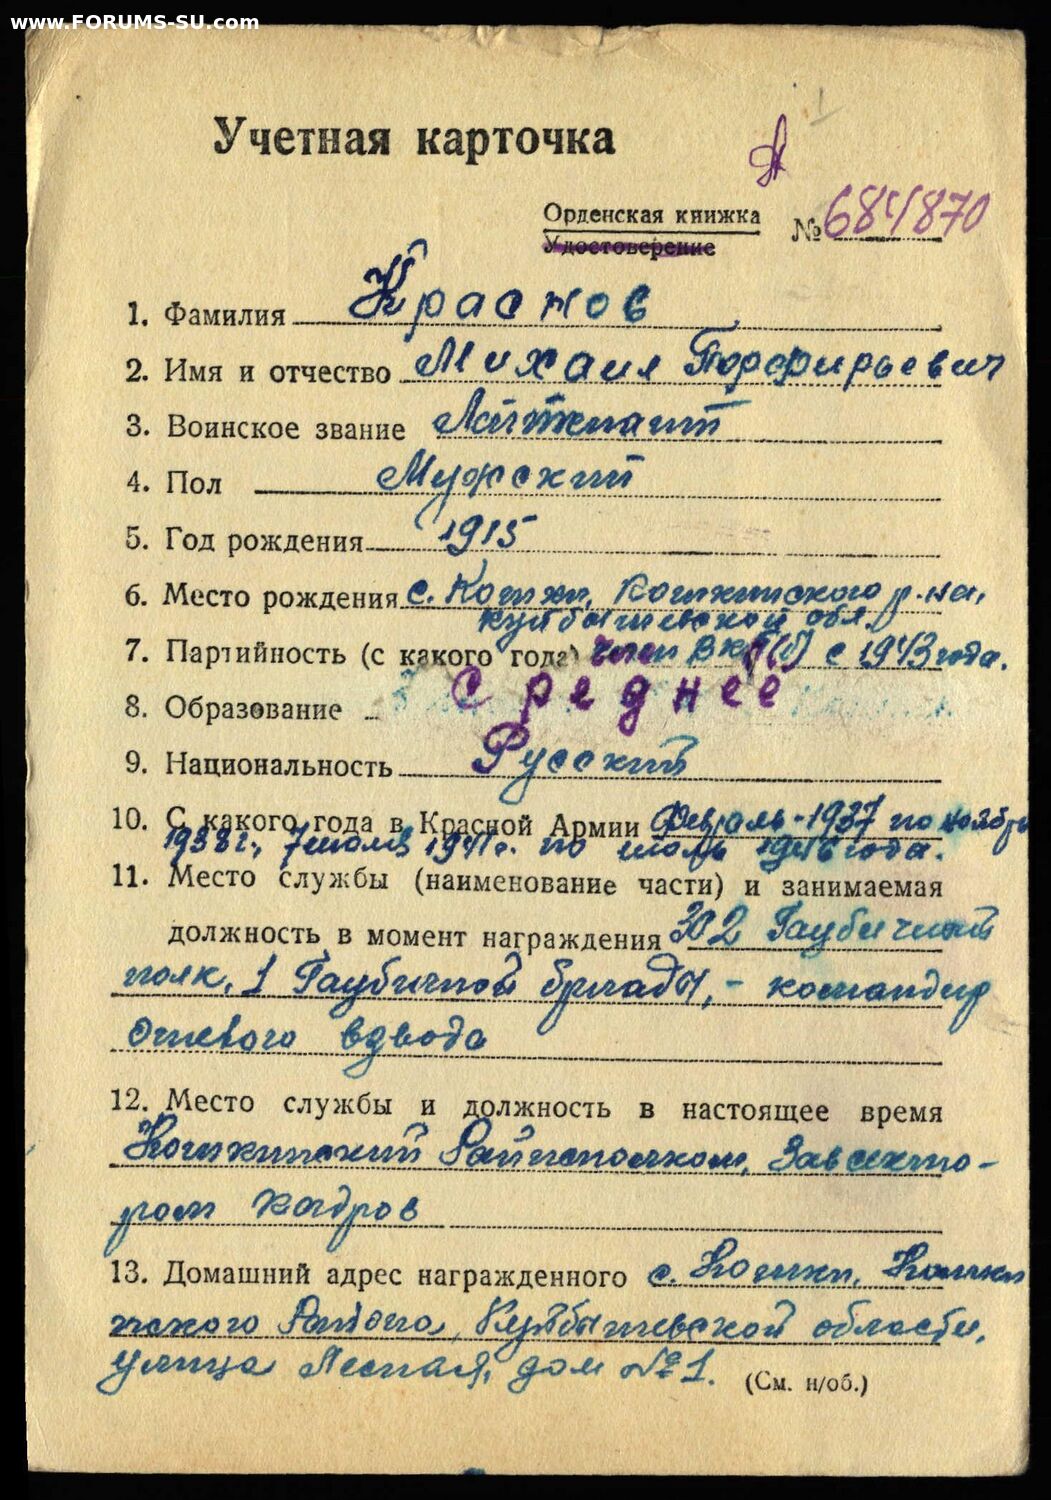 www.FORUMS-SU.com
Учетная карточка
А
Орденская книжка № 684870
Удостоверение
1. Фамилия Краснов
2. Имя и отчество Михаил Порфирьевич
3. Воинское звание Лейтенант
4. Пол Мужский
5. Год рождения 1915
6. Место рождения с. Кошки, Кошкинского р-на,
Куйбышевской обл.
7. Партийность (с какого года) член ВКП(б) с 1943 года.
8. Образование среднее
9. Национальность Русский
10. С какого года в Красной Армии Февраль-1937 по ноябрь
1938 г., 7 июля 1941 г. по июль 1946 года.
11. Место службы (наименование части) и занимаемая
должность в момент награждения 302 Гаубичный
полк, 1 Гаубичной бригады, - командир
огневого взвода
12. Место службы и должность в настоящее время
Кошкинский Райисполком, Завсекто-
ром кадров
13. Домашний адрес награжденного с. Кошки, Кошки
нского Района, Куйбышевской области,
улица Лесная, дом № 1.
(См. н/об.)